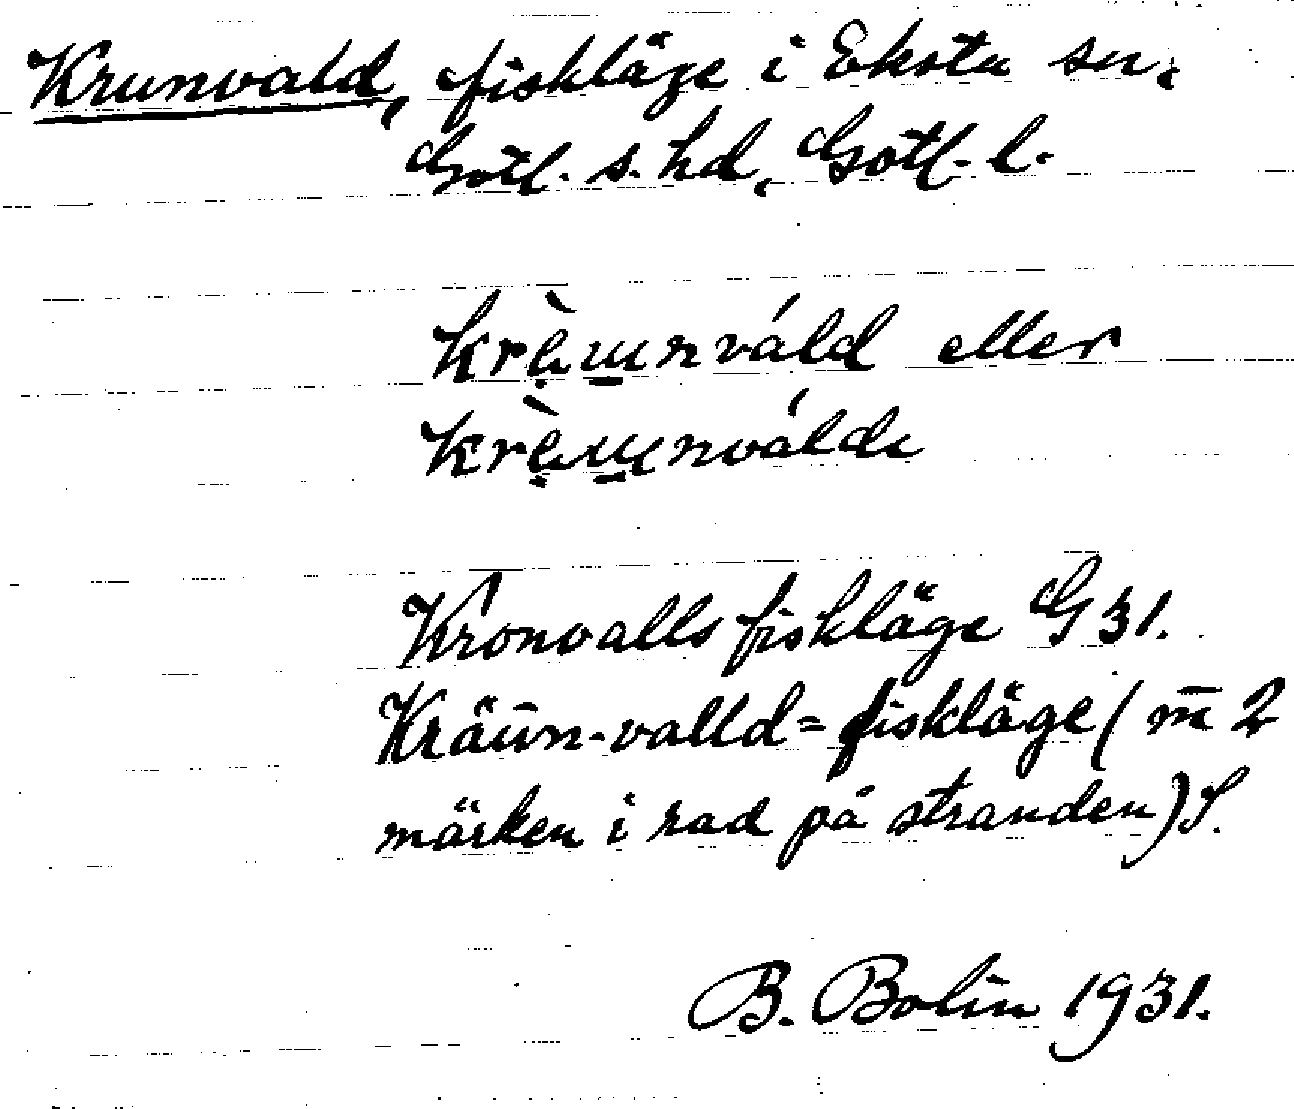 Krunvald, fiskläge i Eksta sn,
Gotl. s. hd, Gotl. l.
eller
Kronvalls fiskläge G 31.
Kräün-valld= fiskläge (m̄ 2
märken i rad på stranden) S.
B. Bolin 1931.